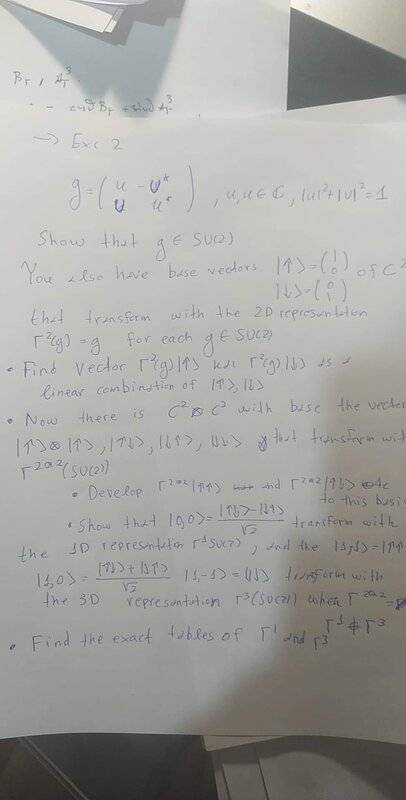 Bτ, Aτ³
- cosθ Bτ + sinθ Aτ³
→ Exc 2
g = (u -v* ; v u*), u,v ∈ ℂ, |u|²+|v|²=1
Show that g ∈ SU(2)
You also have base vectors |↑⟩=(1 0) of C²
|↓⟩=(0 1)
that transform with the 2D representation
Γ²(g) = g for each g ∈ SU(2)
• Find vector Γ²(g)|↑⟩ και Γ²(g)|↓⟩ as a
linear combination of |↑⟩,|↓⟩
• Now there is C²⊗C² with base the vector
|↑⟩⊗|↑⟩, |↑↓⟩, |↓↑⟩, |↓↓⟩ that transform wit
Γ²⊗²(SU(2))
• Develop Γ²⊗²|↑↑⟩ and Γ²⊗²|↑↓⟩ etc
to this basis
• Show that |0,0⟩ = (|↑↓⟩-|↓↑⟩)/√2 transform with
the 1D representation Γ¹SU(2), and the |1,1⟩=|↑↑
|1,0⟩ = (|↑↓⟩+|↓↑⟩)/√2 |1,-1⟩=|↓↓⟩ transform with
the 3D representation Γ³(SU(2)) when Γ²⊗²=
Γ¹⊕Γ³
• Find the exact tables of Γ¹ and Γ³